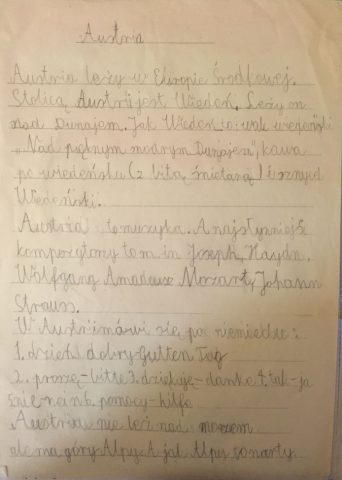 Austria
Austria leży w Europie Środkowej.
Stolicą Austrii jest Wiedeń. Leży on
nad Dunajem. Jak Wiedeń to: walc wiedeński
„Nad pięknym modrym Dunajem", kawa
po wiedeńsku (z bitą śmietaną) i sznycel
Wiedeński.
Austria to muzyka. A najsłynniejsi
kompozytorzy to m in Joseph Haydn,
Wolfgang Amadeusz Mozart, Johann
Strauss.
W Austrii mówi się po niemiecku:
1. dzień dobry-Gutten Tag
2. proszę-bitte 3. dziękuję-danke 4. tak-ja
5 nie-nein 6. pomocy-hilfe
Austria nie leż nad morzem
ale ma góry Alpy. A jak Alpy to narty.